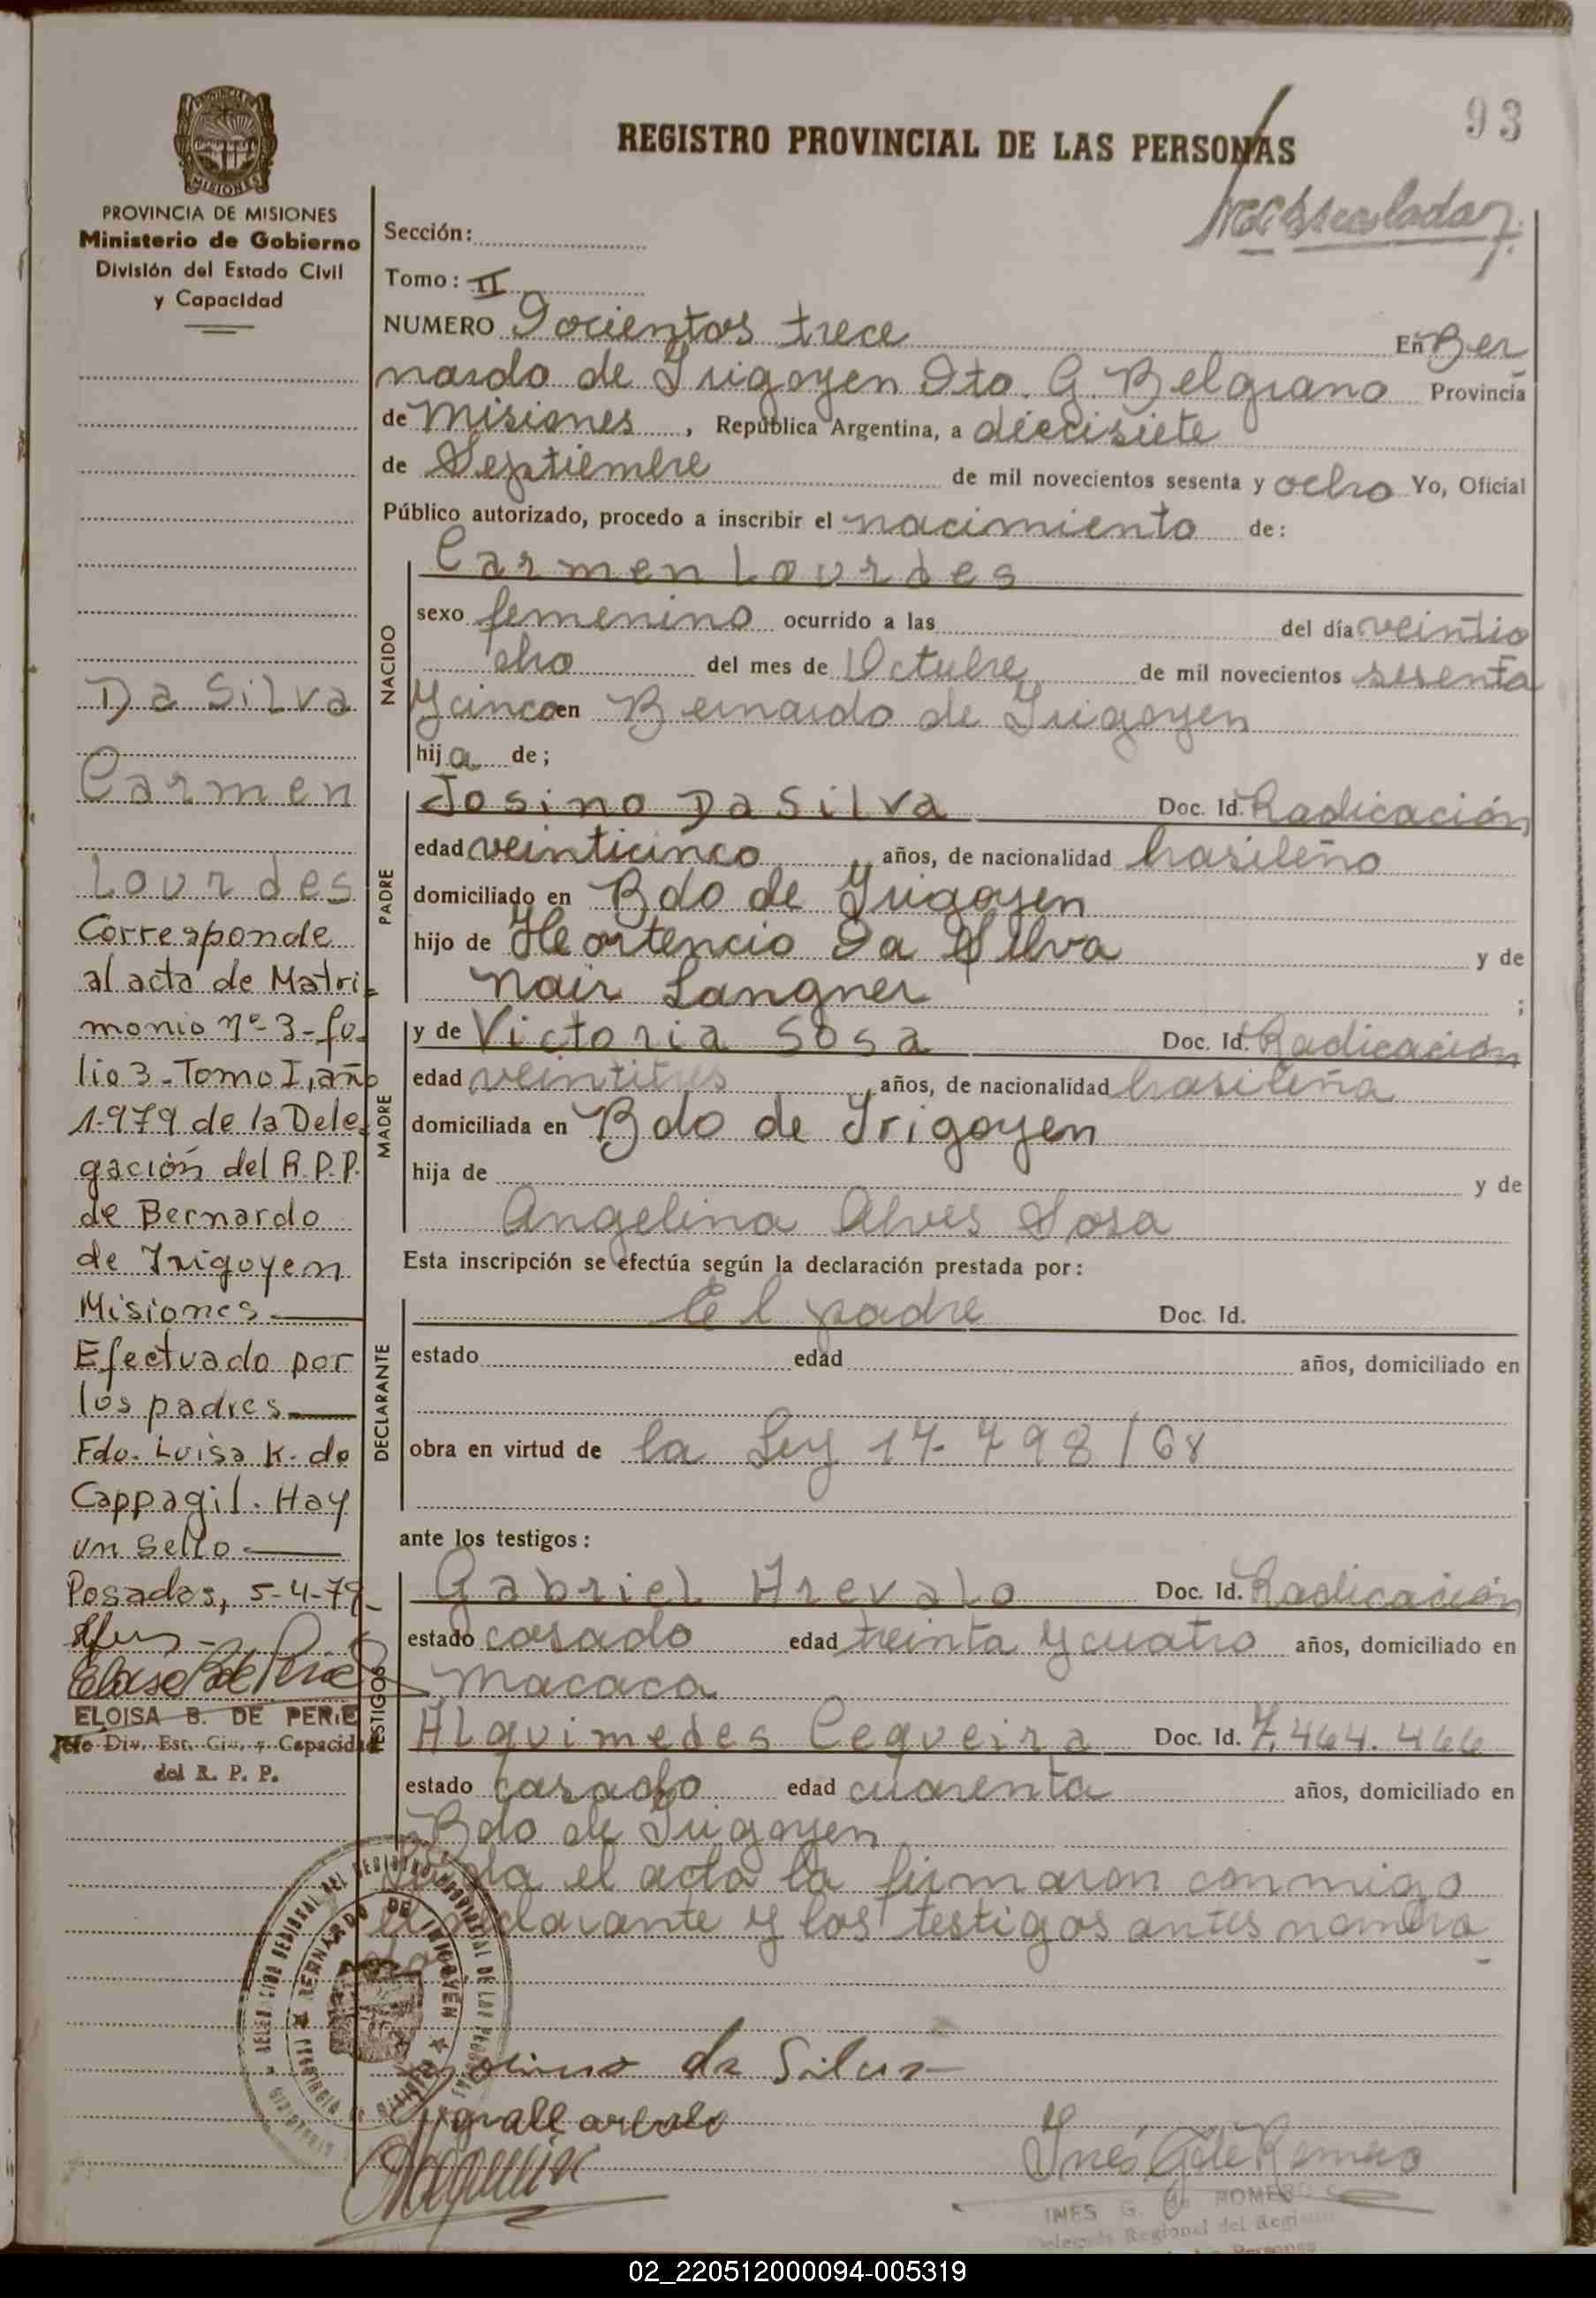 93
REGISTRO PROVINCIAL DE LAS PERSONAS
PROVINCIA DE MISIONES
MISIONES
PROVINCIA DE MISIONES
Ministerio de Gobierno
División del Estado Civil
y Capacidad
Sección:
Tomo: II
NUMERO Docientos trece En Ber
nardo de Irigoyen Dto. G. Belgrano Provincia
de Misiones, República Argentina, a diecisiete
de Septiembre de mil novecientos sesenta y ocho Yo, Oficial
Público autorizado, procedo a inscribir el nacimiento de:
NACIDO
Carmen Lourdes
sexo femenino ocurrido a las del día veintio
cho del mes de Octubre de mil novecientos sesenta
y cinco en Bernardo de Irigoyen
hija de;
PADRE
Josino Da Silva Doc. Id. Radicación
edad veinticinco años, de nacionalidad brasileño
domiciliado en Bdo de Irigoyen
hijo de Heortencio Da Silva y de
Nair Langner ;
MADRE
y de Victoria Sosa Doc. Id. Radicación
edad veintitres años, de nacionalidad brasileña
domiciliada en Bdo de Irigoyen
hija de y de
Angelina Alves Sosa
Esta inscripción se efectúa según la declaración prestada por:
DECLARANTE
El padre Doc. Id.
estado edad años, domiciliado en
obra en virtud de la Ley 17.798/68
ante los testigos:
TESTIGOS
Gabriel Arevalo Doc. Id. Radicación
estado casado edad treinta y cuatro años, domiciliado en
Macaca
Alquimedes Cequeira Doc. Id. 7.464.466
estado casado edad cuarenta años, domiciliado en
Bdo de Irigoyen
el acta la firmaron conmigo
el declarante y los testigos antes nombra
Da Silva
Carmen
Lourdes
Corresponde
al acta de Matri-
monio nº 3-fo-
lio 3-Tomo I, año
1.979 de la Dele-
gación del R.P.P.
de Bernardo
de Irigoyen
Misiones
Efectuado por
los padres
Fdo. Luisa K. de
Cappagil. Hay
un sello
Posadas, 5-4-79-
ELOISA B. DE PERIE
Jefe Div. Est. Civ. y Capacidad
del R. P. P.
BERNARDO DE IRIGOYEN
da Silva
Inés G de Romero
INES G. de ROMERO
Delegada Regional del Registro
de las Personas
02_220512000094-005319